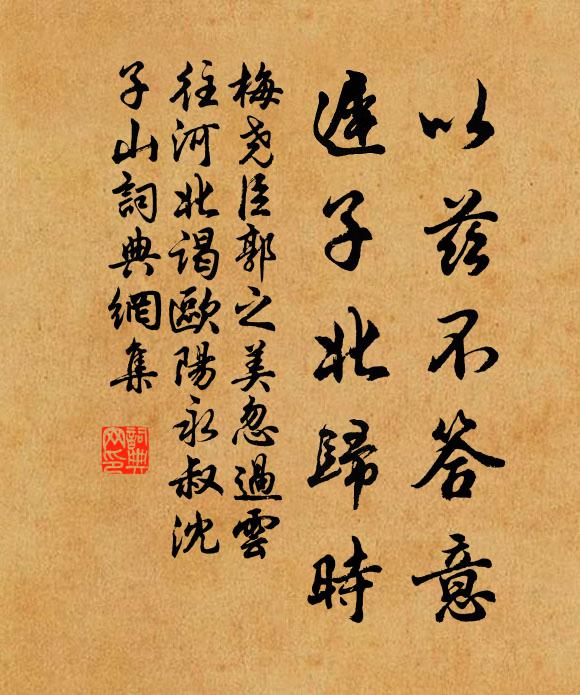 以茲不答意
遲子北歸時
梅堯臣郭之美忽過雲
往河北謁歐陽永叔沈
子山詞典網集
詞典網印